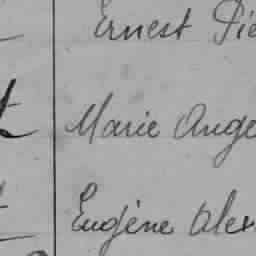 Ernest Pie
Marie Ange
Eugène Alex